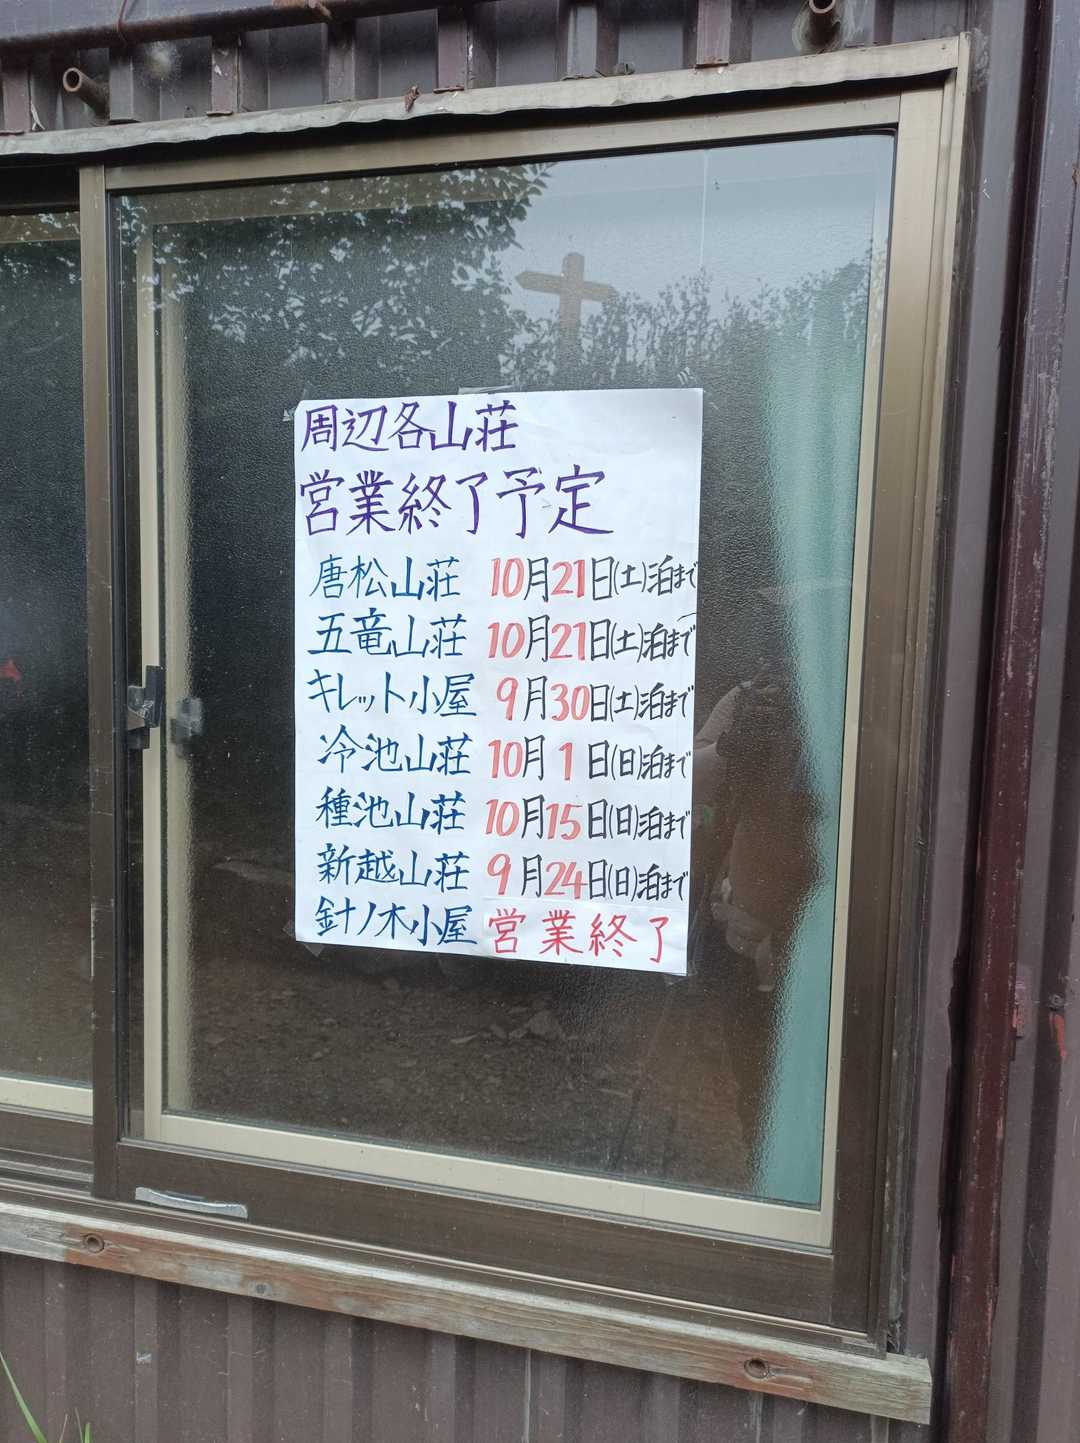 周辺各山荘
営業終了予定
唐松山荘 10月21日(土)泊まで
五竜山荘 10月21日(土)泊まで
キレット小屋 9月30日(土)泊まで
冷池山荘 10月1日(日)泊まで
種池山荘 10月15日(日)泊まで
新越山荘 9月24日(日)泊まで
針ノ木小屋 営業終了